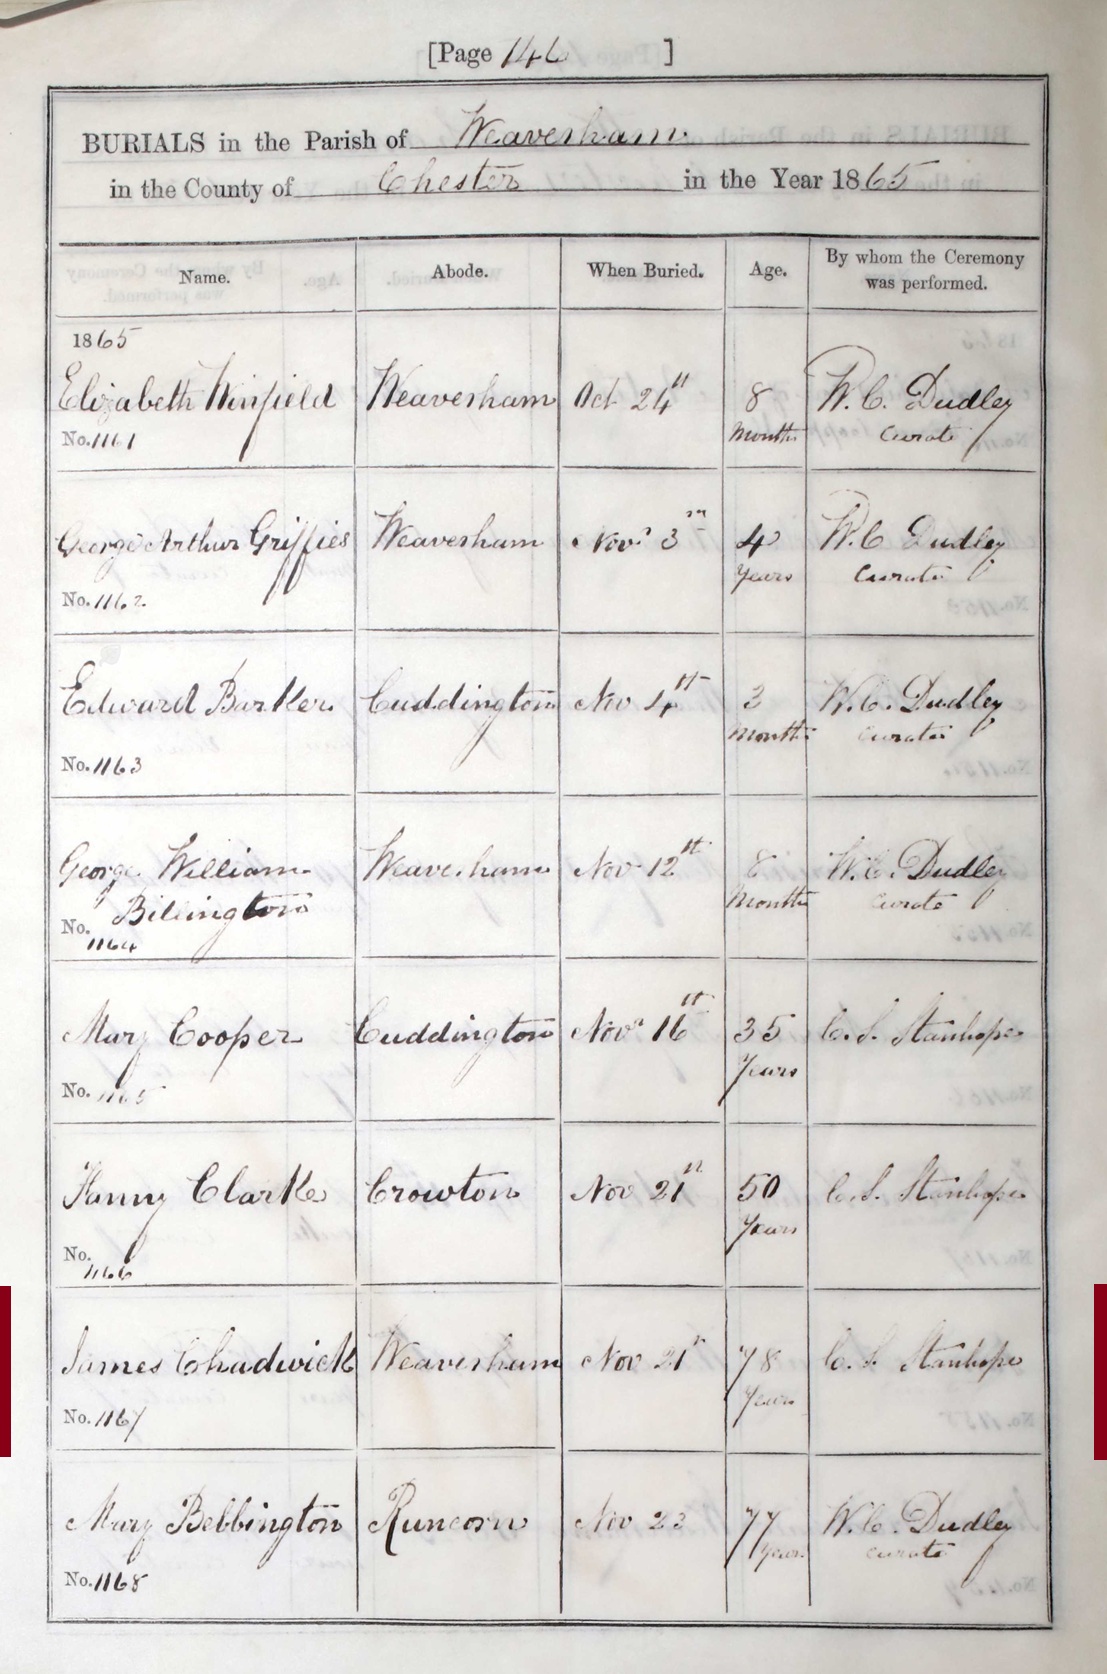 [Page 146 ]
BURIALS in the Parish of Weaverham
in the County of Chester in the Year 1865
Name. Abode. When Buried. Age. By whom the Ceremony was performed.
1865
Elizabeth Winfield Weaverham Oct 24th 8 W. C. Dudley
No. 1161 Months Curate
George Arthur Griffies Weaverham Novr 3rd 4 W. C Dudley
No. 1162 Years Curate
Edward Barker Cuddington Nov 4th 3 W. C. Dudley
No. 1163 Months Curate
George William Weaverham Nov 12th 8 W. C. Dudley
Billington Months Curate
No. 1164
Mary Cooper Cuddington Novr 16th 35 C. S. Stanhope
No. 1165 Years
Fanny Clarke Crowton Nov 21st 50 C. S. Stanhope
No. 1166 Years
James Chadwick Weaverham Nov 21st 78 C. S. Stanhope
No. 1167 Years
Mary Bebbington Runcorn Nov 23 77 W. C. Dudley
No. 1168 Years Curate